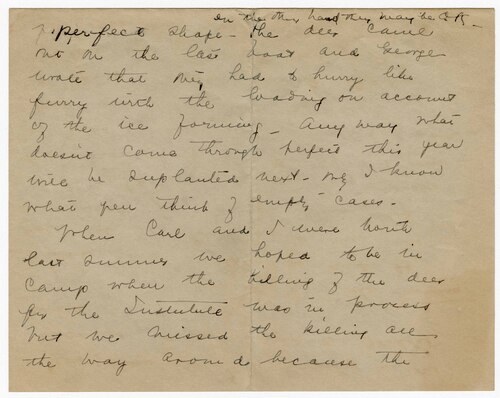 on the other hand they may be O.K.
perfect shape - the deer came
out on the last boat and George
wrote that they had to hurry like
furry with the loading on account
of the ice forming - Any way what
doesn't come through perfect this year
will be suplanted next - We, I know
what you think of empty cases -
When Carl and I were North
last summer we hoped to be in
camp when the killing of the deer
for the Institute was in process
but we missed the killing all
the way around because the